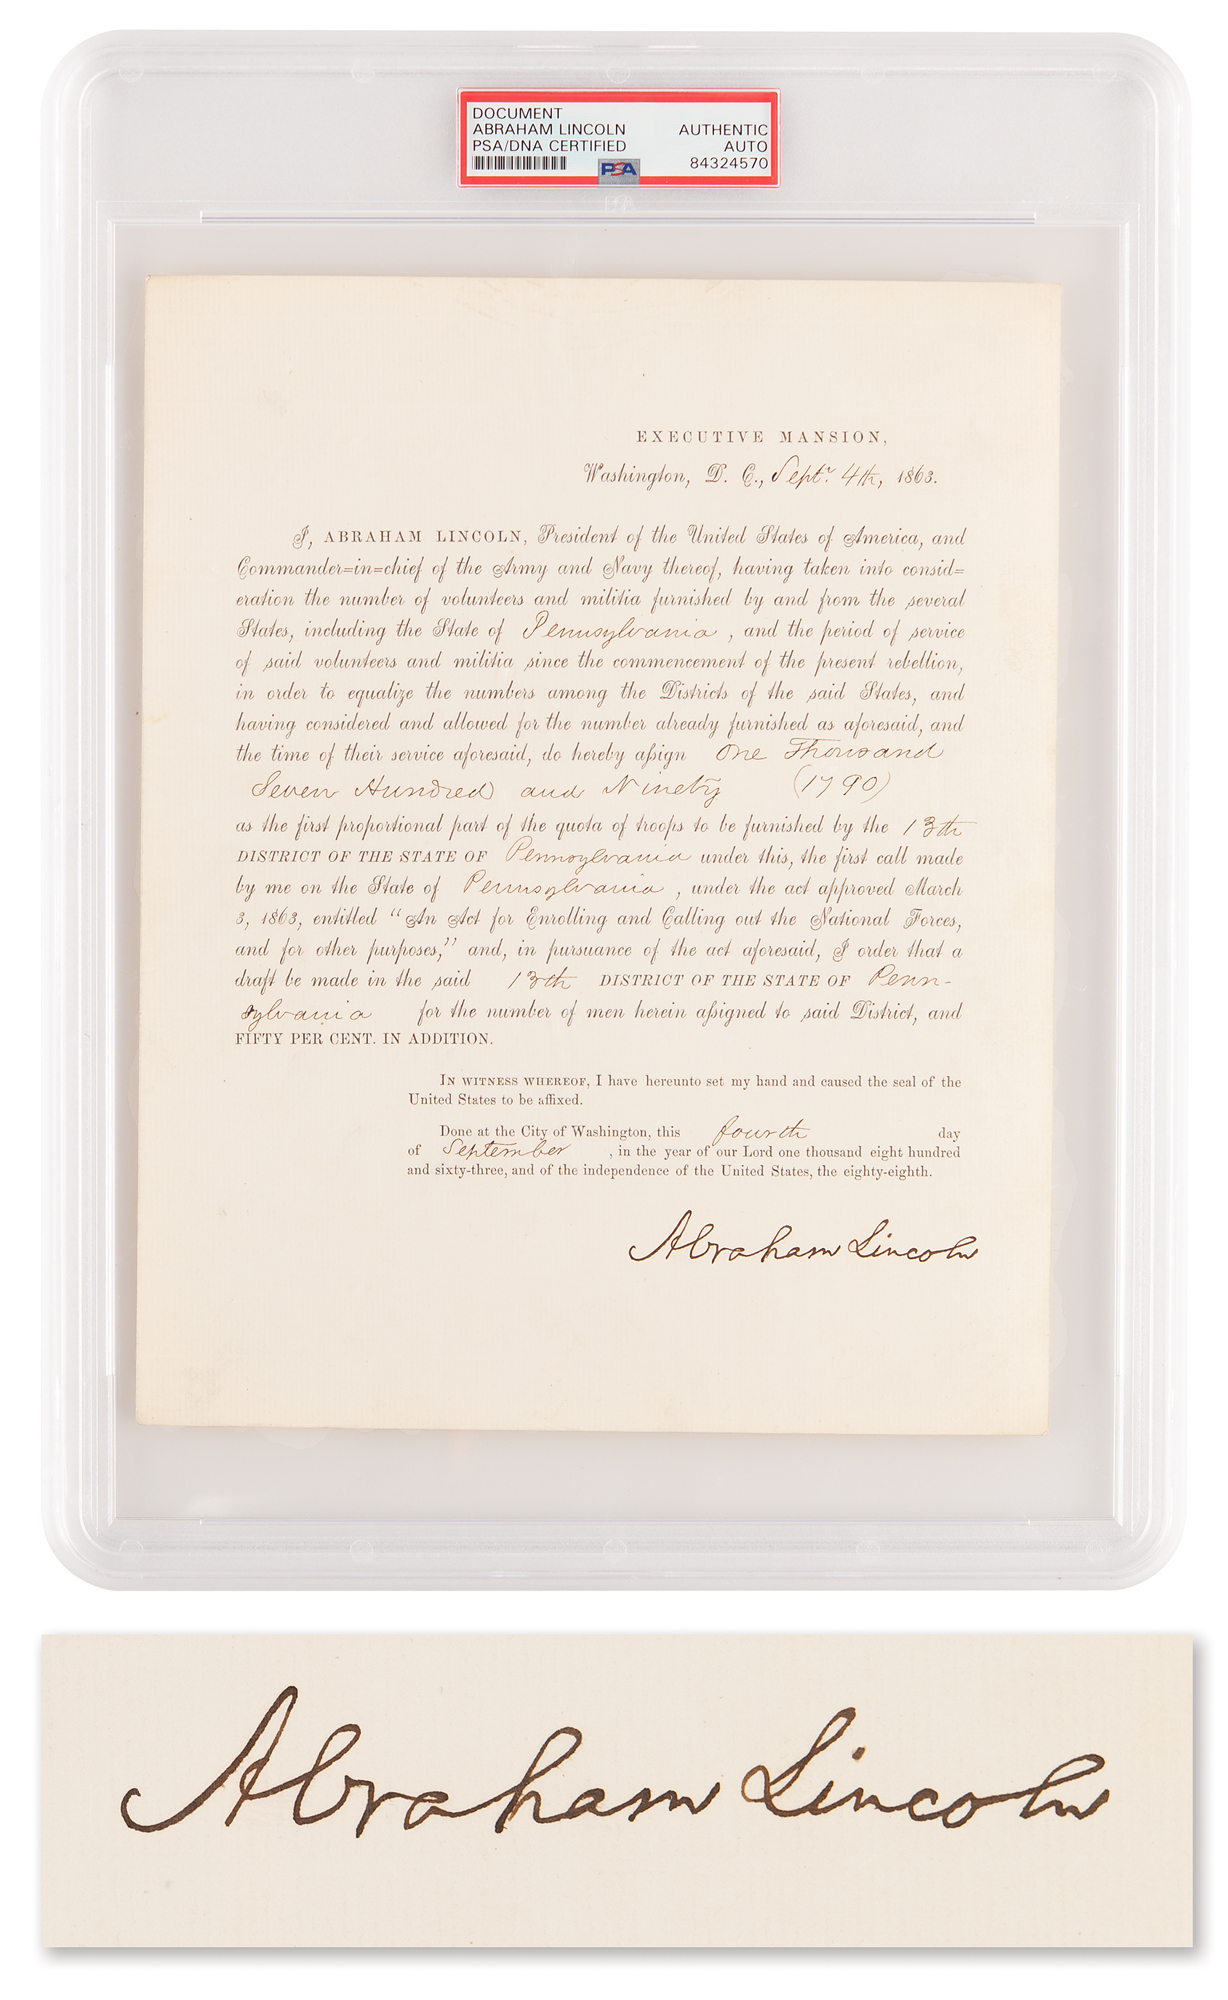 DOCUMENT
ABRAHAM LINCOLN AUTHENTIC
PSA/DNA CERTIFIED AUTO
PSA 84324570
EXECUTIVE MANSION,
Washington, D. C., Septr. 4th, 1863.
I, ABRAHAM LINCOLN, President of the United States of America, and
Commander=in=chief of the Army and Navy thereof, having taken into consid=
eration the number of volunteers and militia furnished by and from the several
States, including the State of Pennsylvania, and the period of service
of said volunteers and militia since the commencement of the present rebellion,
in order to equalize the numbers among the Districts of the said States, and
having considered and allowed for the number already furnished as aforesaid, and
the time of their service aforesaid, do hereby aſsign One Thousand
Seven Hundred and Ninety (1790)
as the first proportional part of the quota of troops to be furnished by the 13th
DISTRICT OF THE STATE OF Pennsylvania under this, the first call made
by me on the State of Pennsylvania, under the act approved March
3, 1863, entitled "An Act for Enrolling and Calling out the National Forces,
and for other purposes," and, in pursuance of the act aforesaid, I order that a
draft be made in the said 13th DISTRICT OF THE STATE OF Penn-
sylvania for the number of men herein aſsigned to said District, and
FIFTY PER CENT. IN ADDITION.
IN WITNESS WHEREOF, I have hereunto set my hand and caused the seal of the
United States to be affixed.
Done at the City of Washington, this fourth day
of September, in the year of our Lord one thousand eight hundred
and sixty-three, and of the independence of the United States, the eighty-eighth.
Abraham Lincoln
Abraham Lincoln